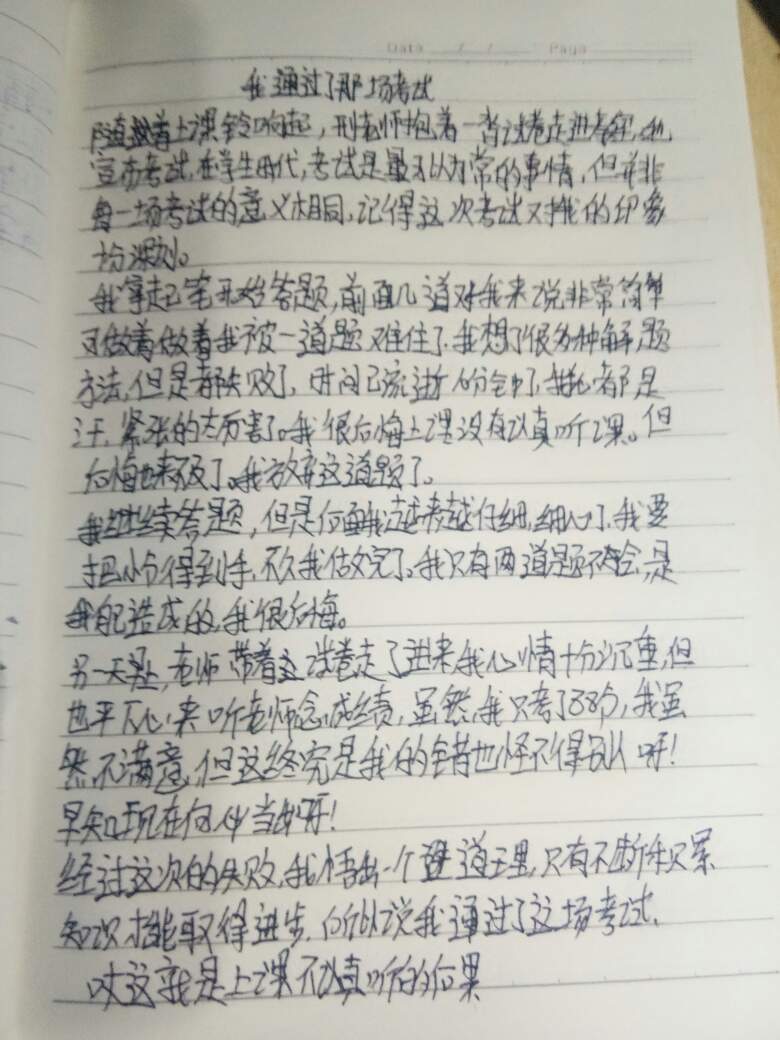 Date / / Page
我通过了那场考试
随着上课铃响起,邢老师抱着一沓试卷走进教室,
宣布考试,在学生时代,考试是最习以为常的事情,但并非
每一场考试的意义相同,记得这次考试对我的印象
十分深刻。
我拿起笔开始答题,前面几道对我来说非常简单
可做着做着我被一道题难住了,我想了很多种解题
方法,但是都失败了,时间已流逝 分钟了,我 都是
汗,紧张的太厉害了。我很后悔上课没有认真听课。但
后悔也来不及了。我放弃这道题了。
我继续答题,但是后面我越来越仔细,细心了,我要
把小分得到手,不久我做完了。我只有两道题不会,是
我自己造成的,我很后悔。
另一天 ,老师带着 试卷走了进来,我心情十分沉重,但
也平下心来听老师念成绩,虽然,我只考了88分,我虽
然不满意,但这终究是我的错也怪不得别人呀!
早知现在何必当初呀!
经过这次的失败,我悟出一个 道理,只有不断积累
知识才能取得进步,所以说我通过了这场考试,
对这就是上课不认真听的后果